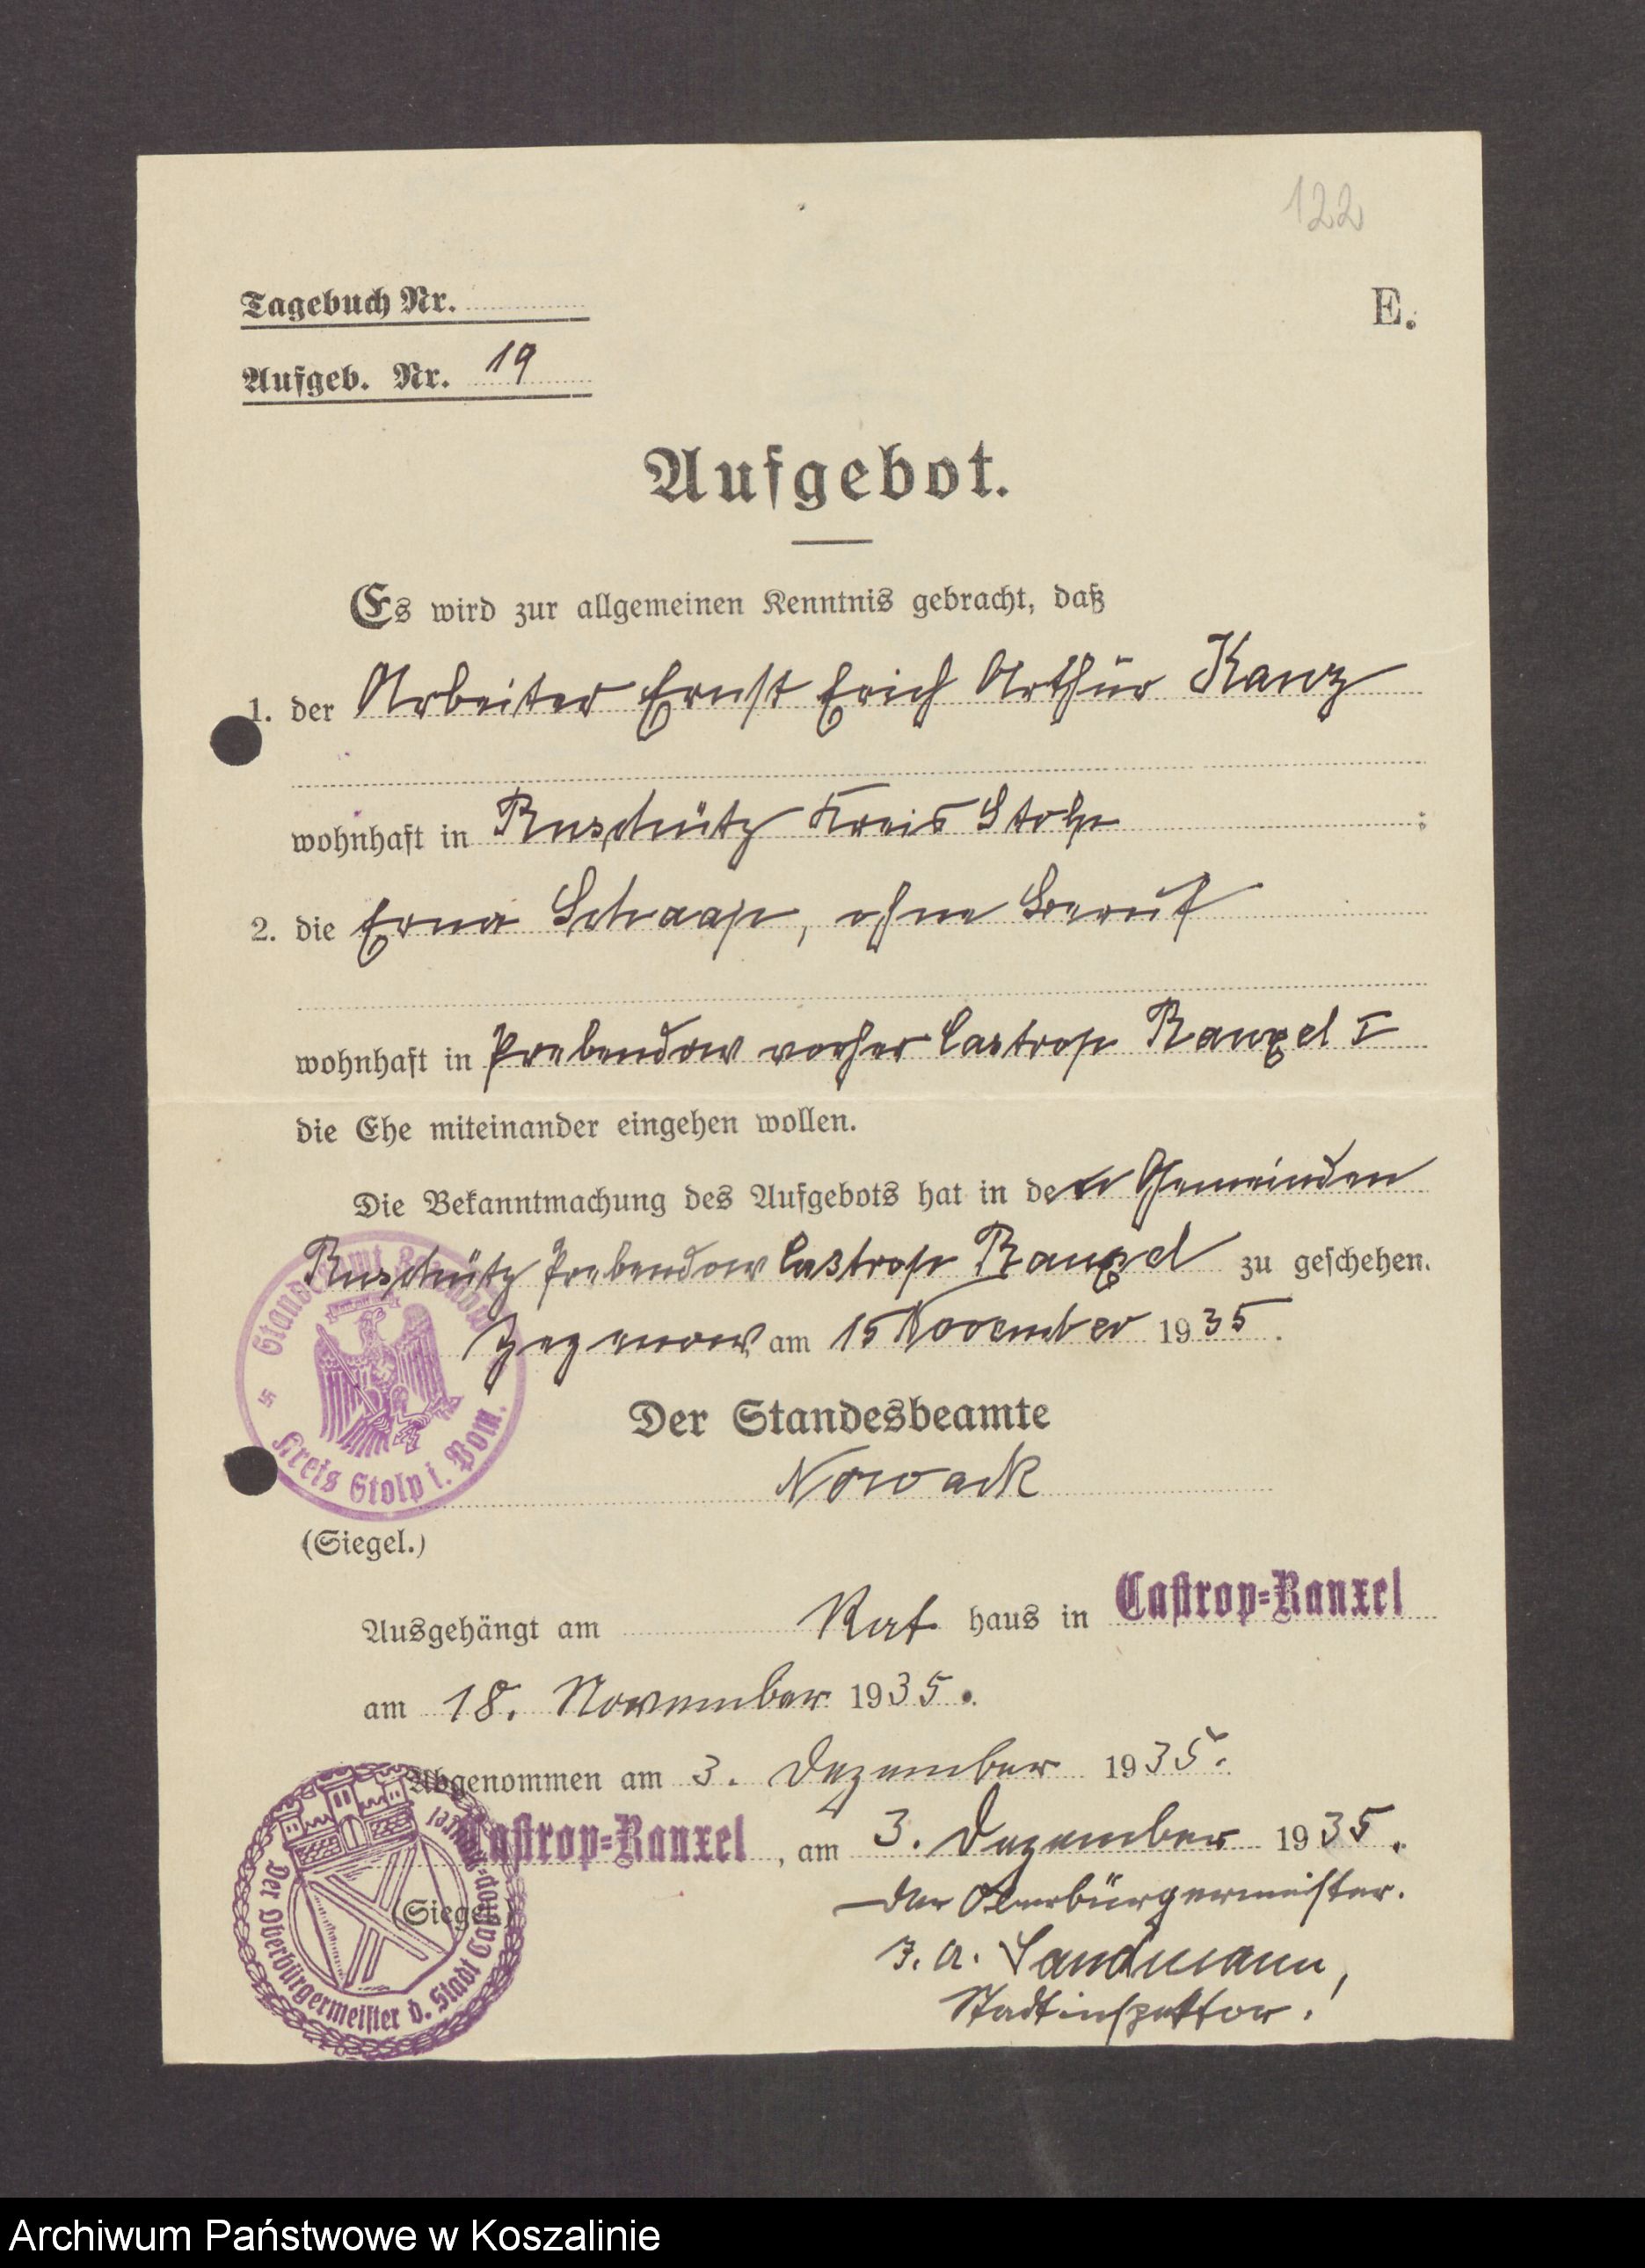 122
Tagebuch Nr.
E.
Aufgeb. Nr. 19
Aufgebot.
Es wird zur allgemeinen Kenntnis gebracht, daß
1. der Arbeiter Ernst Erich Arthur Kanz
wohnhaft in Ruschütz Kreis Stolp ;
2. die Erna Schaap, ohne Beruf
wohnhaft in Prebendow vorher Castrop Rauxel I
die Ehe miteinander eingehen wollen.
Die Bekanntmachung des Aufgebots hat in den Gemeinden
Ruschütz Prebendow Castrop Rauxel zu geschehen.
Zezenow, am 15 November 1935.
Der Standesbeamte
Nowack
Standesamt
Kreis Stolp i. Pom.
(Siegel.)
Ausgehängt am Rathaus in Castrop-Rauxel
am 18. November 1935.
Abgenommen am 3. Dezember 1935.
Castrop-Rauxel, am 3. Dezember 1935.
Der Oberbürgermeister.
(Siegel.)
Der Oberbürgermeister d. Stadt Castrop-Rauxel
J. A. Sandmann,
Stadtinspektor.
Archiwum Państwowe w Koszalinie